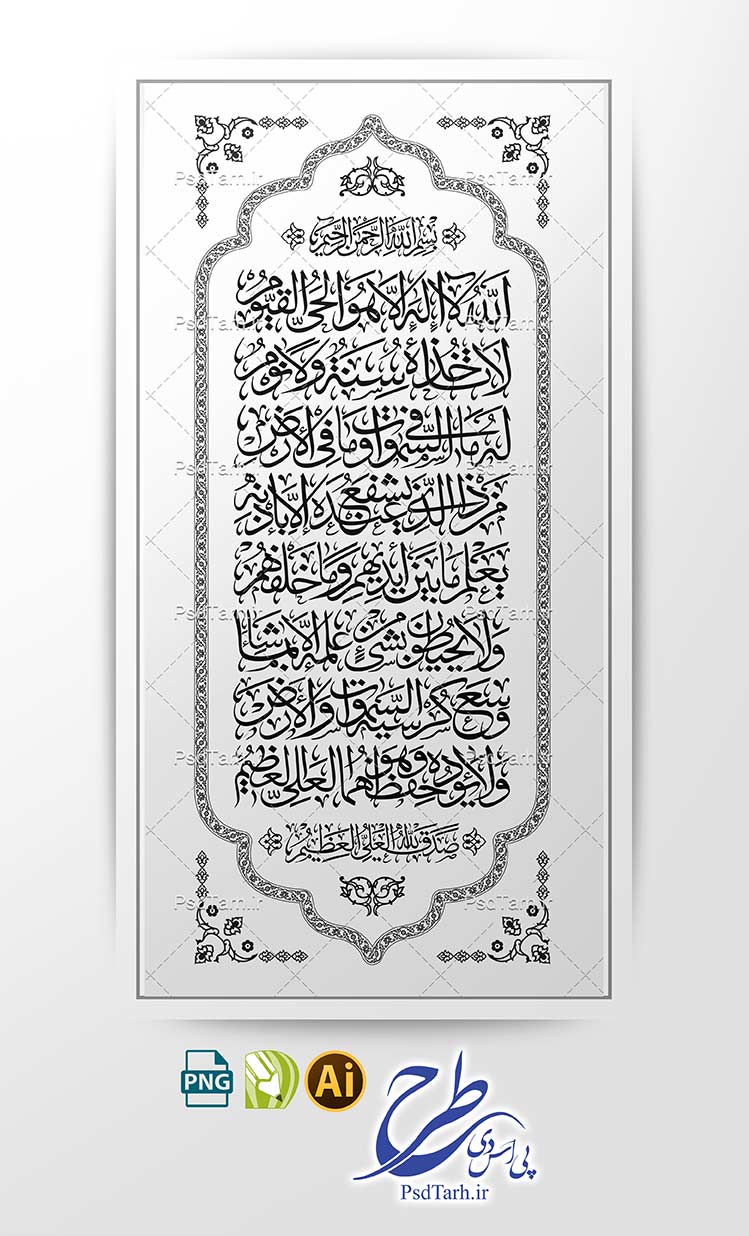 بِسْمِ اللَّهِ الرَّحْمَنِ الرَّحِيمِ
اللَّهُ لَا إِلَهَ إِلَّا هُوَ الْحَيُّ الْقَيُّومُ
لَا تَأْخُذُهُ سِنَةٌ وَلَا نَوْمٌ
لَهُ مَا فِي السَّمَوَاتِ وَمَا فِي الْأَرْضِ
مَنْ ذَا الَّذِي يَشْفَعُ عِنْدَهُ إِلَّا بِإِذْنِهِ
يَعْلَمُ مَا بَيْنَ أَيْدِيهِمْ وَمَا خَلْفَهُمْ
وَلَا يُحِيطُونَ بِشَيْءٍ مِنْ عِلْمِهِ إِلَّا بِمَا شَاءَ
وَسِعَ كُرْسِيُّهُ السَّمَوَاتِ وَالْأَرْضَ
وَلَا يَئُودُهُ حِفْظُهُمَا وَهُوَ الْعَلِيُّ الْعَظِيمُ
صَدَقَ اللَّهُ الْعَلِيُّ الْعَظِيمُ
PsdTarh.ir
PNG
Ai
پی اس دی طرح
PsdTarh.ir